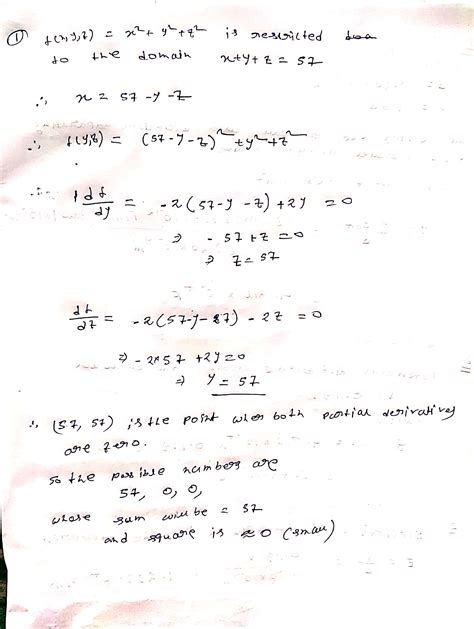 ① f(x,y,z) = x² + y² + z² is restricted
to the domain x+y+z = 57
∴ x = 57 -y -z
∴ f(y,z) = (57-y-z)² + y² + z²
df/dy = -2(57-y-z) + 2y = 0
⇒ - 57 + z = 0
⇒ z = 57
df/dz = -2(57-y-z) - 2z = 0
⇒ - 2*57 + 2y = 0
⇒ y = 57
∴ (57, 57) is the point wher both partial derivatives
are zero.
so the possible numbers are
57, 0, 0,
whose sum will be = 57
and square is ≈ 0 (small)